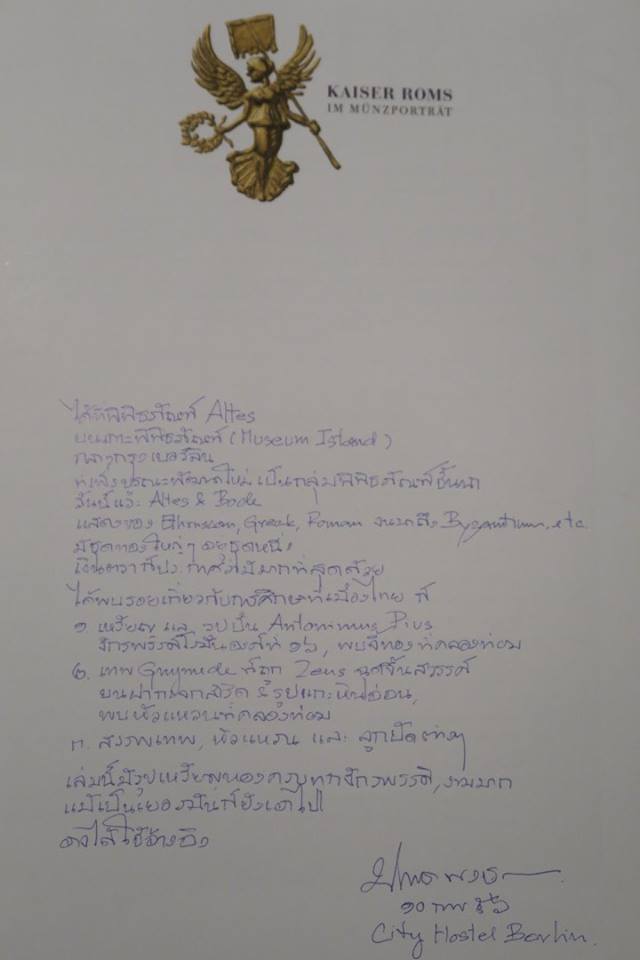 KAISER ROMS
IM MÜNZPORTRÄT
ได้ที่พิพิธภัณฑ์ Altes
บนเกาะพิพิธภัณฑ์ (Museum Island)
กลางกรุงเบอร์ลิน
เป็นกลุ่มพิพิธภัณฑ์ชั้นนำ
วันนี้แวะ Altes & Bode
แสดงของ Ethruscan, Greek, Roman จนมาถึง Byzantium, etc.
มีชุดทองใหญ่ๆ อยู่ชุดหนึ่ง
มีมากที่สุดด้วย
ได้พบรอยเกี่ยวกับการศึกษาที่เมืองไทย ที่
๑ เหรียญ และ รูปปั้น Antonimus Pius
จักรพรรดิโรมันองค์ที่ ๑๖, พบจี้ทองที่คลองท่อม
๒. เทพ Gnymede ที่ถูก Zeus ฉุดขึ้นสวรรค์
บนฝากระจกสำริด & รูปแกะหินอ่อน,
พบหัวแหวนที่คลองท่อม
๓. สรรพเทพ, หัวแหวน และ ลูกปัดต่างๆ
เล่มนี้มีรูปเหรียญทองครบทุกจักรพรรดิ, งามมาก
แม้เป็นเยอรมันก็ยังเอาไป
ได้ใช้อ้างอิง
๑๐ กพ ๕๖
City Hostel Berlin.